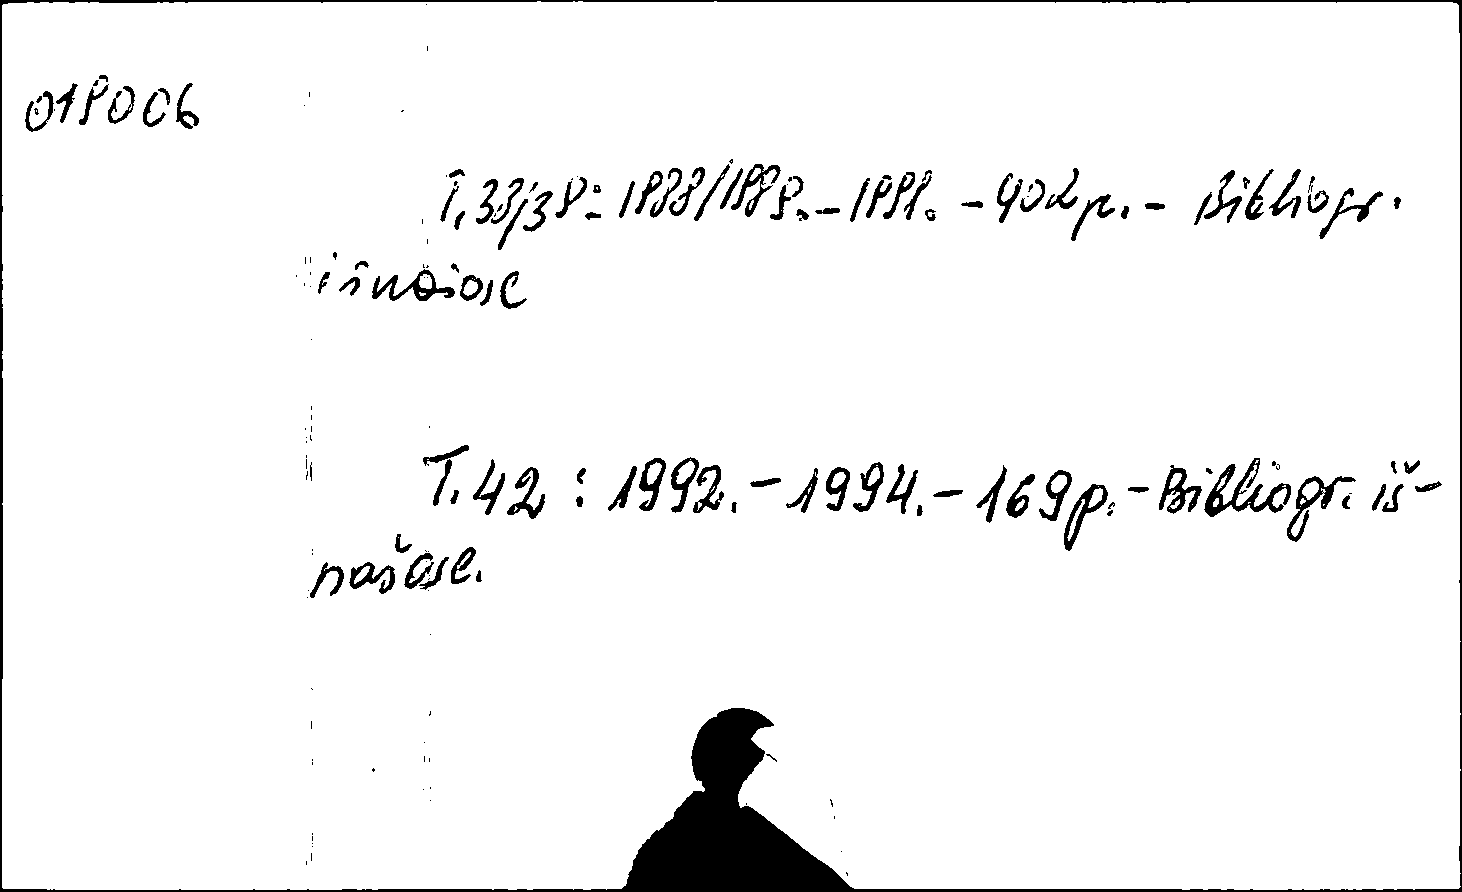 019006
T.38/39: 1988/1989. - 1991. - 402 p. - Bibliogr.
išnašose
T.42 : 1992. - 1994. - 169 p. - Bibliogr. iš-
našose.